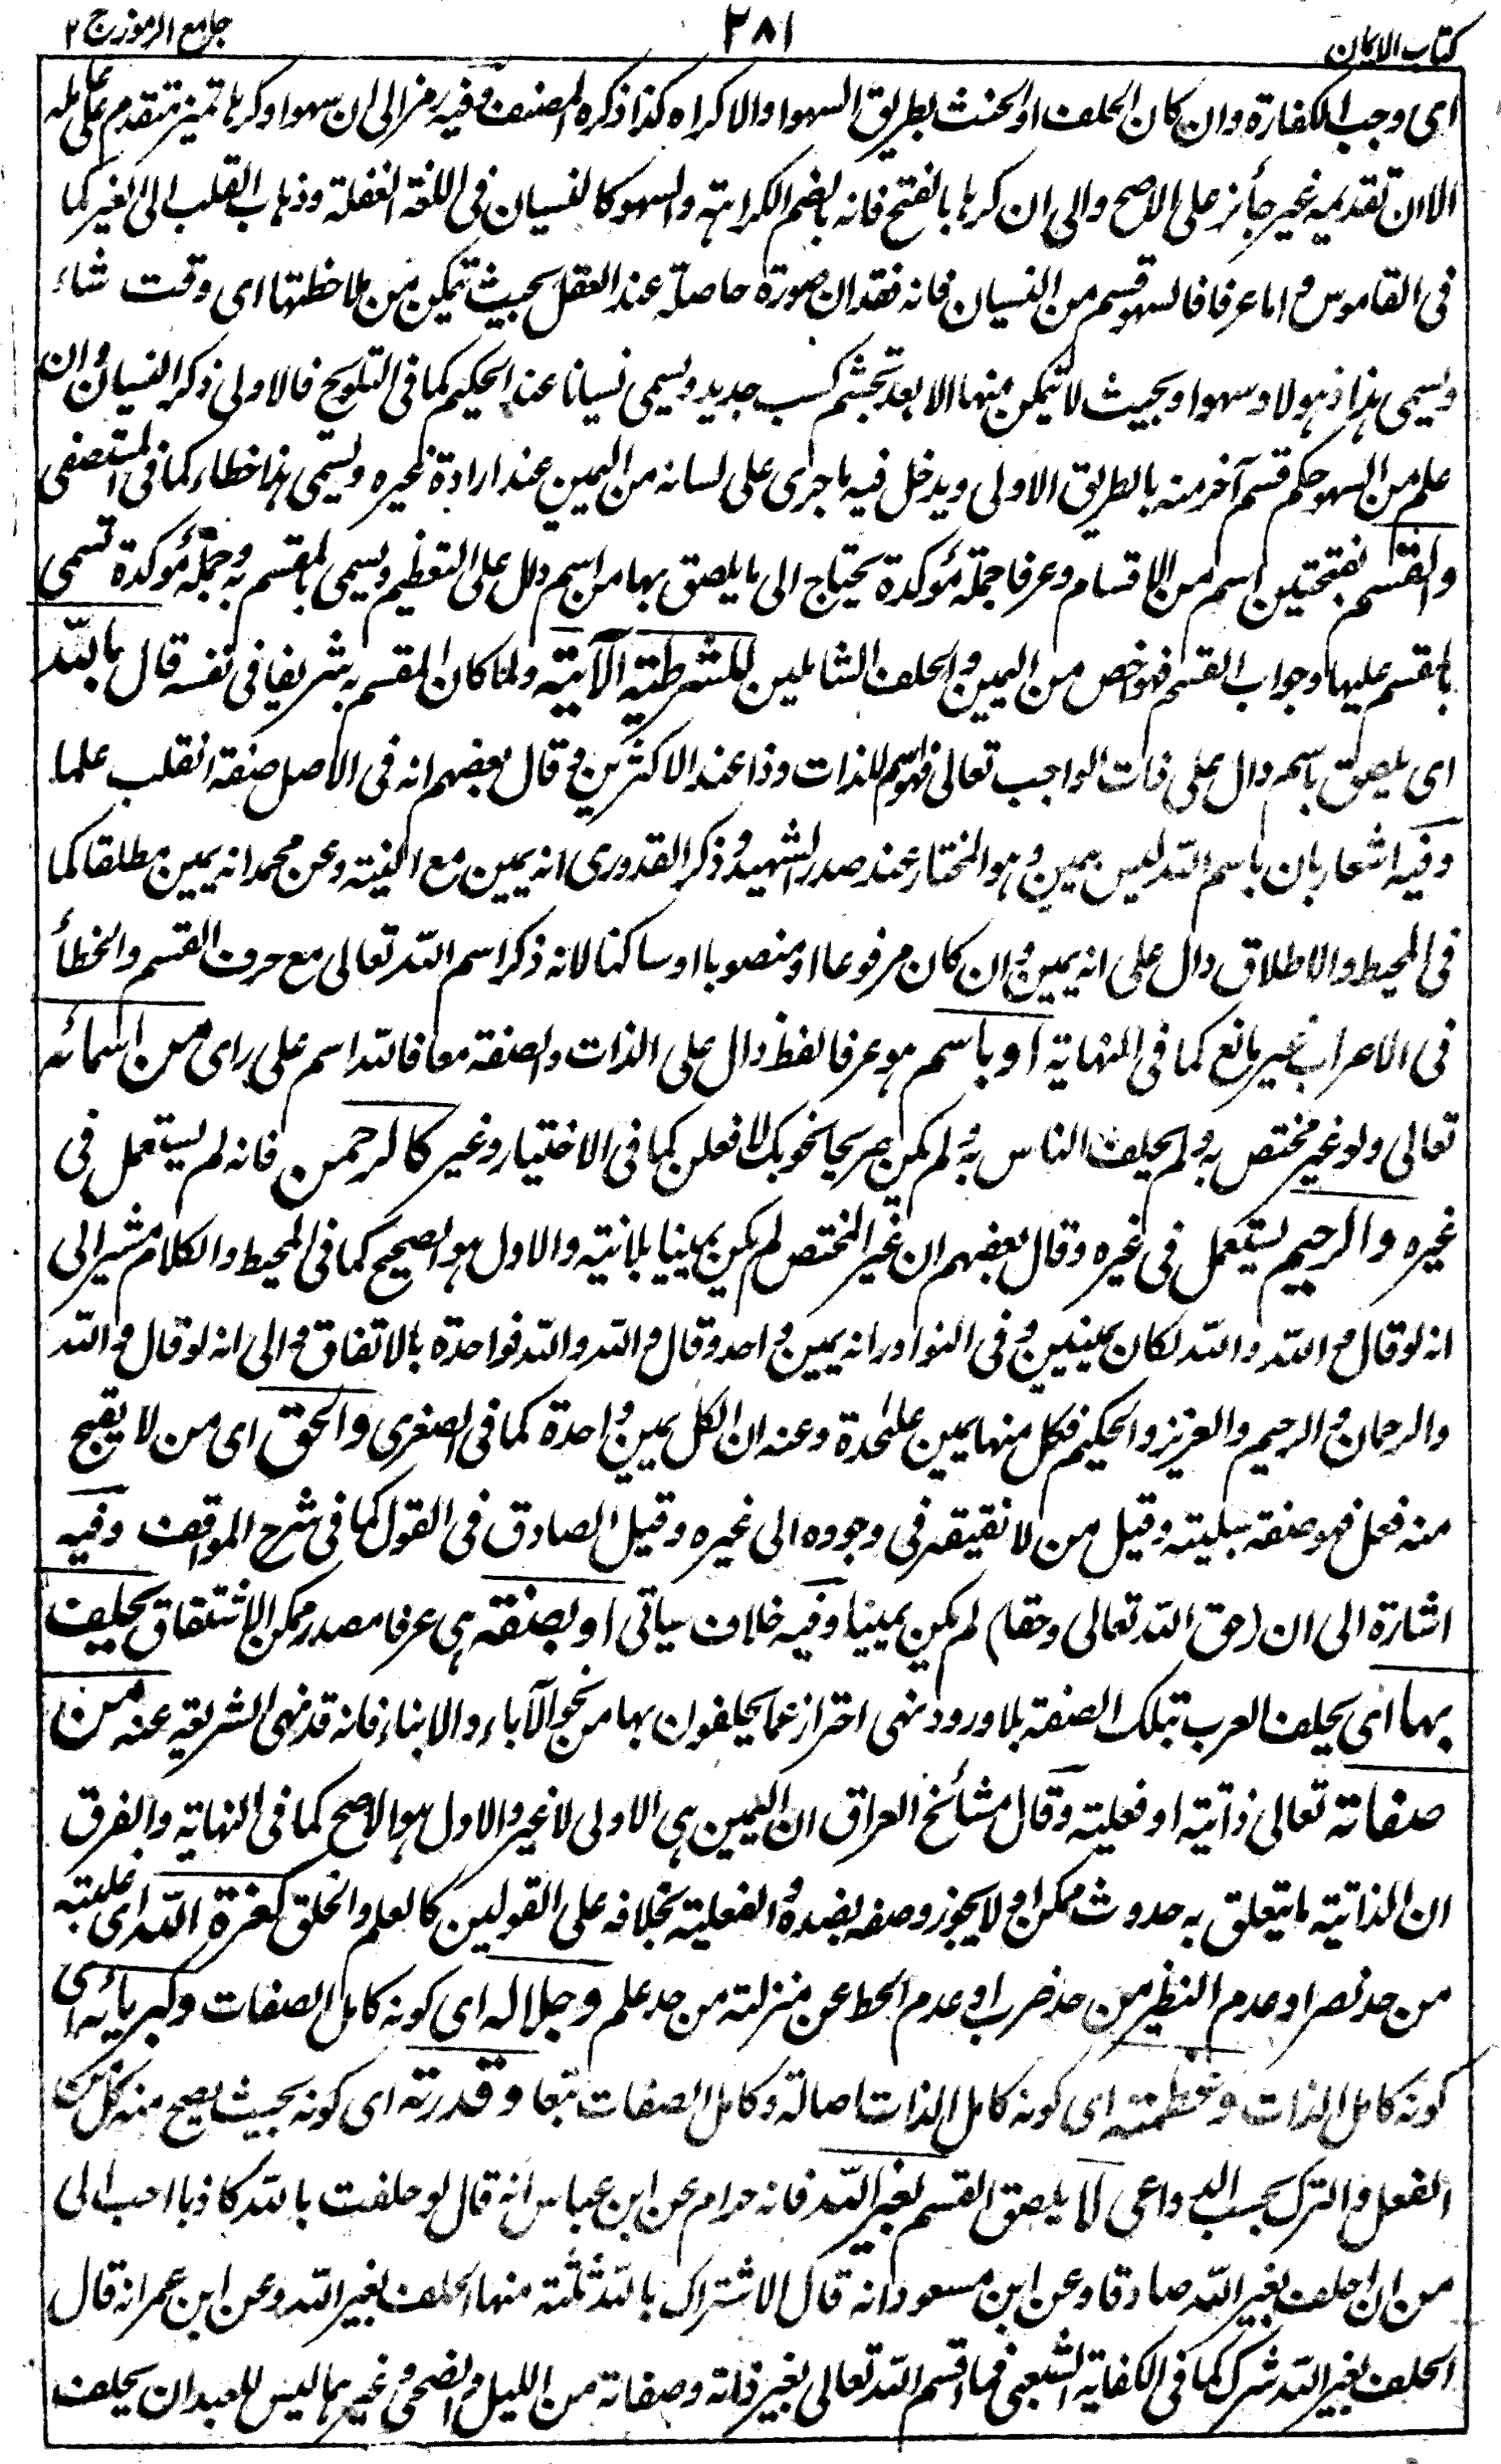 كتاب الايمان ٢٨١ جامع الرموز ج ٢
اى وجب الكفارة وان كان الحلف او الحنث بطريق السهو او الاكراه كذا ذكره المصنف وفيه رمز الى ان سهوا وكرها تميز متقدم على عامله
الا ان تقديمه غير جائز على الاصح والى ان كرها بالفتح فانه بالضم الكراهة والسهو كالنسيان فى اللغة الغفلة وذهاب القلب الى الغير كما
فى القاموس واما عرفا فالسهو قسم من النسيان فانه فقدان صورة حاصلة عند العقل بحيث تمكن من ملاحظتها اى وقت شاء
ويسمى هذا ذهولا وسهوا وبحيث لا يتمكن منها الا بعد تجشم كسب جديد ويسمى نسيانا عند الحكيم كما فى التلويح فالاولى ذكر النسيان وان
علم من السهو حكم قسم آخر منه بالطريق الاولى ويدخل فيه ما جرى على لسانه من اليمين عند ارادة غيره ويسمى هذا خطاء كما فى المستصفى
والقسم بفتحتين اسم من الاقسام وعرفا جملة مؤكدة يحتاج الى ما يلصق بها من اسم دال على التعظيم ويسمى بالمقسم به وجملة مؤكدة تسمى
بالمقسم عليها وجواب القسم فهو اخص من اليمين والحلف الشاملين للشرطية الآتية ولما كان المقسم به شريفا فى نفسه قال بالله
اى يلصق باسم دال على ذات الواجب تعالى فهو اسم للذات وذا عند الاكثرين وقال بعضهم انه فى الاصل صفة انقلب علما
وفيه اشعار بان باسم الله ليس بيمين وهو المختار عند صدر الشهيد وذكر القدورى انه يمين مع النية وعن محمد انه يمين مطلقا كما
فى المحيط والاطلاق دال على انه يمين وان كان مرفوعا او منصوبا او ساكنا لانه ذكر اسم الله تعالى مع حرف القسم والخطأ
فى الاعراب غير مانع كما فى النهاية او باسم هو عرفا لفظ دال على الذات والصفة معا فالله اسم على راى من اسمائه
تعالى ولو غير مختص به ولم يحلف الناس به ولم يكن صريحا نحو بك لافعلن كما فى الاختيار وغيره كالرحمن فانه لم يستعمل فى
غيره والرحيم يستعمل فى غيره وقال بعضهم ان غير المختص لم يكن يمينا بلا نية والاول هو الصحيح كما فى المحيط والكلام مشير الى
انه لو قال والله والله لكان يمينين وفى النوادر انه يمين واحد وقال والله والله فواحدة بالاتفاق والى انه لو قال والله
والرحمان والرحيم والعزيز والحكيم فكل منها يمين علٰحدة وعنه ان الكل يمين واحدة كما فى الصغرى والحق اى من لا يقبح
منه فعل فهو صفة سلبية وقيل من لا يفتقر فى وجوده الى غيره وقيل الصادق فى القول كما فى شرح المواقف وفيه
اشارة الى ان (حق الله تعالى وحقا) لم يكن يمينا وفيه خلاف سياتى او بصفة هى عرفا مصدر ممكن الاشتقاق يحلف
بها اى يحلف العرب بتلك الصفة بلا ورود نهى احتراز عما يحلفون بها من نحو الآباء والابناء فانه قد نهى الشريعة عنه من
صفاته تعالى ذاتية او فعلية وقال مشائخ العراق ان اليمين هى الاولى لا غير والاول هو الاصح كما فى النهاية والفرق
ان الذاتية ما يتعلق به حدوث ممكن او لا يجوز وصفه بضده والفعلية بخلافه على القولين كالعلم والخلق كعزة الله اى غلبته
من حد نصر او عدم النظير من حد ضرب او عدم الحط عن منزلته من حد علم وجلاله اى كونه كامل الصفات وكبريائه اى
كونه كامل الذات وعظمته اى كونه كامل الذات اصالة وكامل الصفات تبعا وقدرته اى كونه بحيث يصح منه كل من
الفعل والترك بحسب الدواعى لا يلصق القسم بغير الله فانه حرام عن ابن عباس انه قال لو حلفت بالله كاذبا احب الى
من ان احلف بغير الله صادقا وعن ابن مسعود انه قال الاشتراك بالله ثلثة منها الحلف بغير الله وعن ابن عمر انه قال
الحلف بغير الله شرك كما فى الكفاية الشعبى فما اقسم الله تعالى بغير ذاته وصفاته من الليل والضحى وغيرهما ليس للعبد ان يحلف